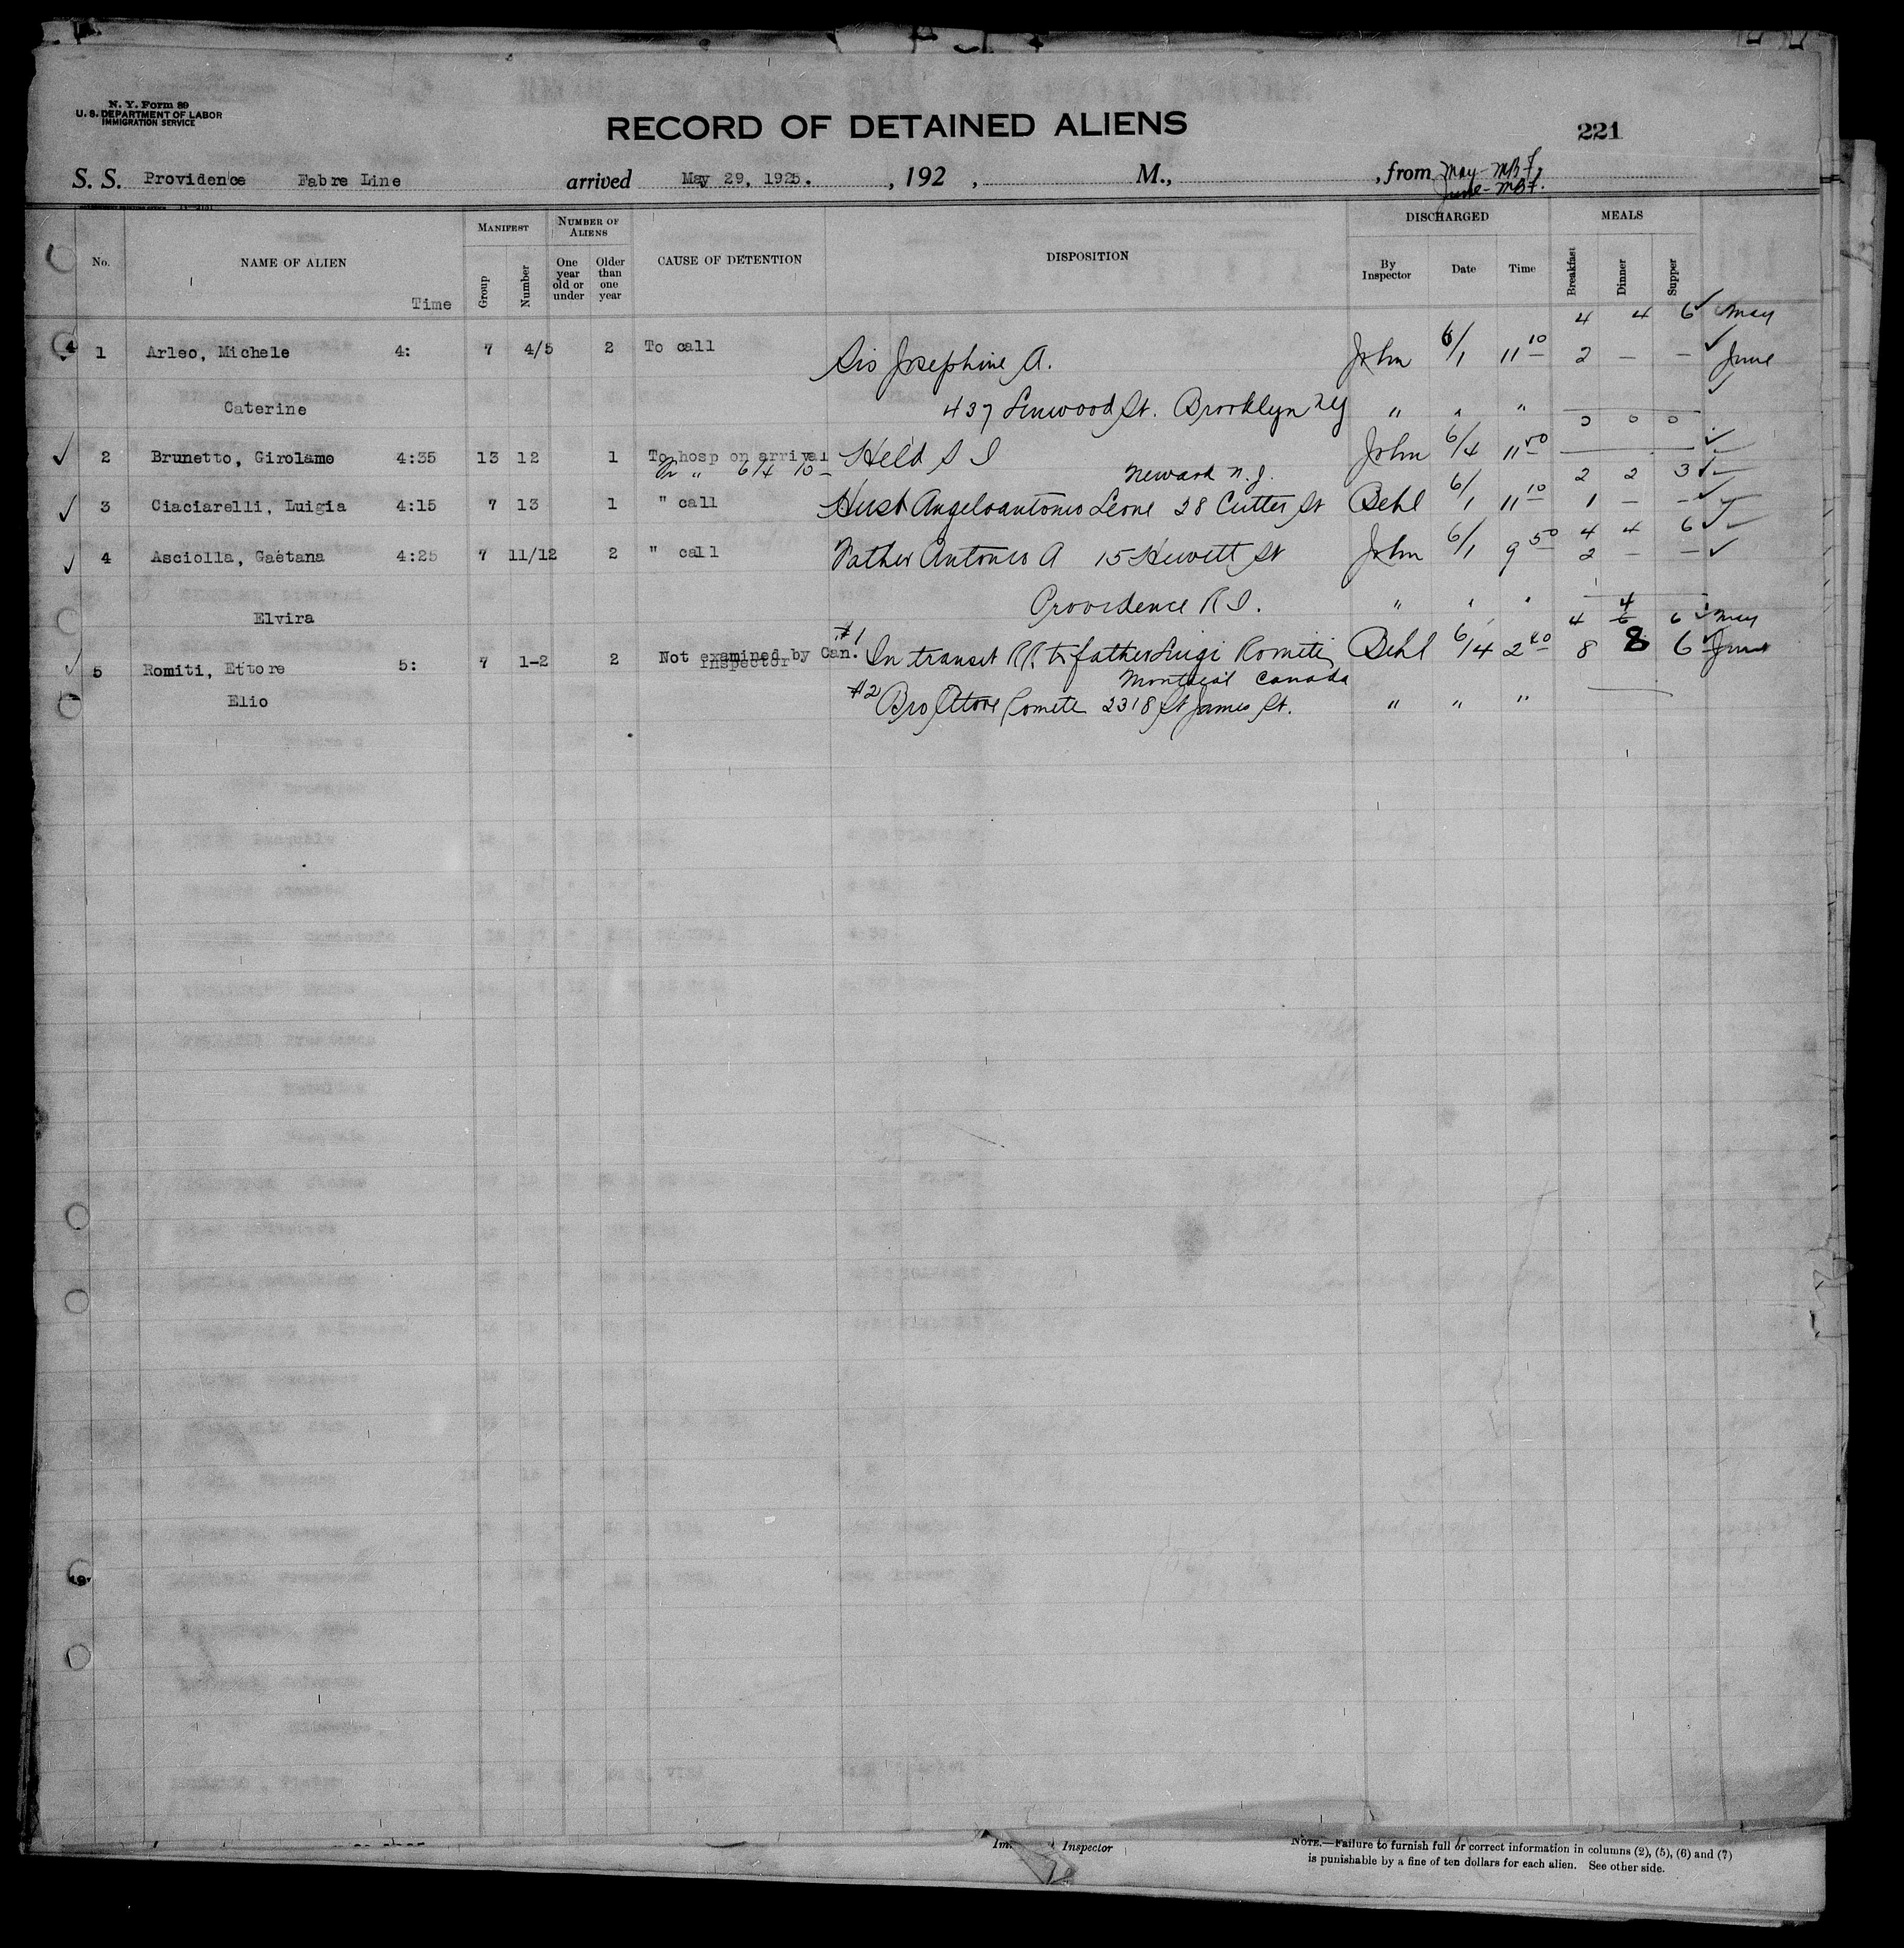 N. Y. Form 89
U. S. DEPARTMENT OF LABOR
IMMIGRATION SERVICE
RECORD OF DETAINED ALIENS
221
S. S. Providence Fabre Line arrived May 29, 1925. , 192 , M., , from May - MBF.
June - MBF.
No. NAME OF ALIEN Time MANIFEST Group Number NUMBER OF ALIENS One year old or under Older than one year CAUSE OF DETENTION DISPOSITION DISCHARGED By Inspector Date Time MEALS Breakfast Dinner Supper
4 4 6 ✓ May
1 Arleo, Michele 4: 7 4/5 2 To call Sis Josephine A. John 6/1 11 10 2 — — ✓ June
Caterine 437 Linwood St. Brooklyn NY " " " ✓
0 0 0
✓ 2 Brunetto, Girolamo 4:35 13 12 1 To hosp on arrival Held S I John 6/4 11 50 ✓
" 6/4 10 —
Newark N. J. 2 2 3 ✓
✓ 3 Ciaciarelli, Luigia 4:15 7 13 1 " call Husb Angeloantonio Leone 28 Cutter St Behl 6/1 11 10 1 — — ✓
4 4 6 ✓
✓ 4 Asciolla, Gaetana 4:25 7 11/12 2 " call Father Antonio A 15 Hewett St John 6/1 9 50 2 — — ✓
Elvira Providence R I. " " "
4 4 6 ✓ May
✓ 5 Romiti, Ettore 5: 7 1-2 2 Not examined by Can. #1 In transit RR to father Luigi Romiti Behl 6/4 2 40 8 8 6 ✓ June
Inspector
Montreal Canada
Elio #2 Bro Ettore Romiti 2318 St James St. " " "
Inspector
NOTE.—Failure to furnish full or correct information in columns (2), (5), (6) and (7)
is punishable by a fine of ten dollars for each alien. See other side.